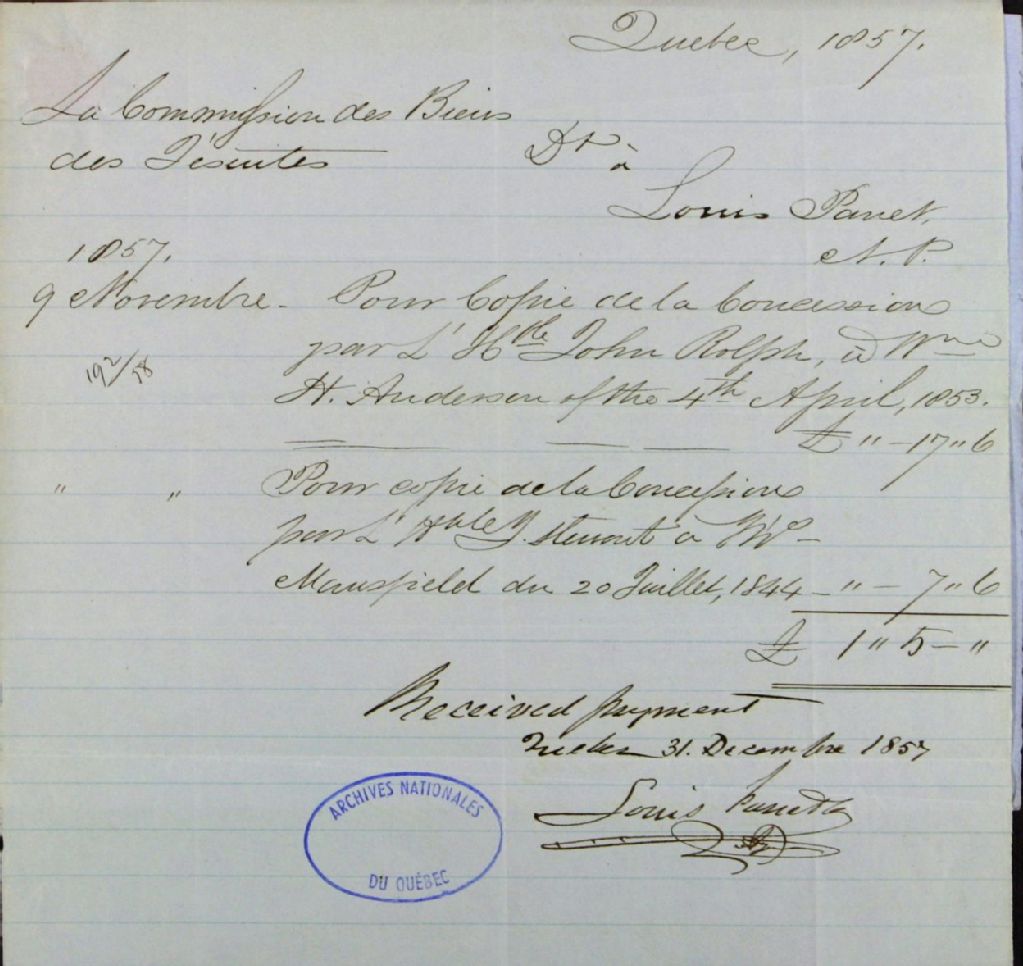 Quebec, 1857.
La Commission des Biens
des Jésuites
Dt à
Louis Panet,
N. P.
1857.
9 Novembre - Pour Copie de la Concession
par L' Hble John Rolph, à Wm
192/58
H. Anderson of the 4th April, 1853.
£ " - 17 " 6
" " Pour copie de la Concession
par L' Hble J. Stewart à Wm
Mansfield du 20 Juillet, 1844 - " - 7 " 6
£ 1 " 5 - "
Received payment
Quebec 31. Decembre 1857
Louis Panet
ARCHIVES NATIONALES
DU QUÉBEC